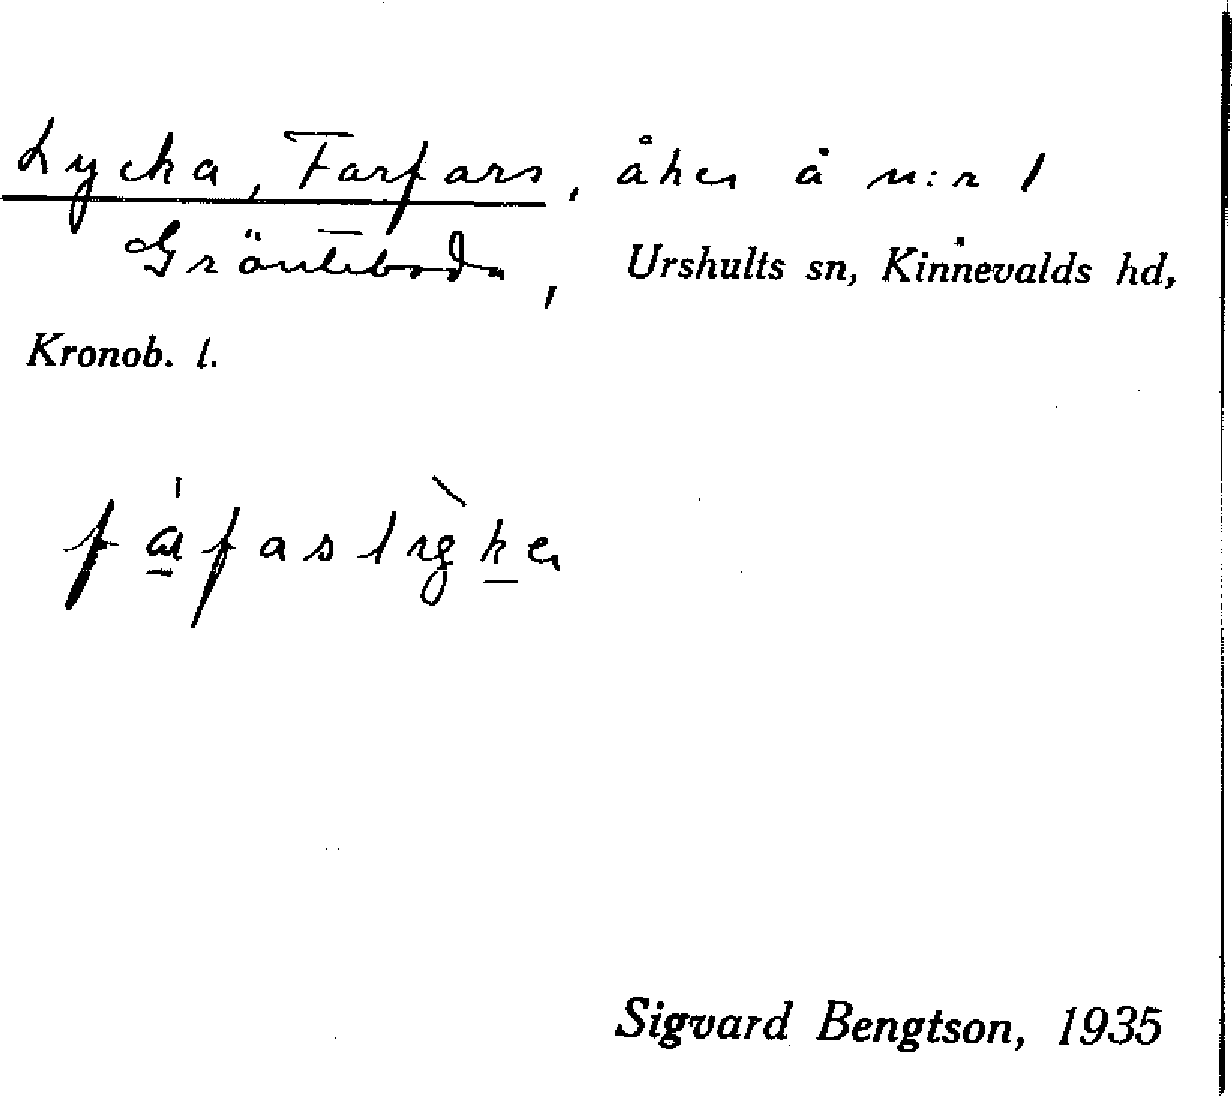 Lycka, Farfars, åker å n:r 1
Gränteboda, Urshults sn, Kinnevalds hd,
Kronob. l.
Sigvard Bengtson, 1935